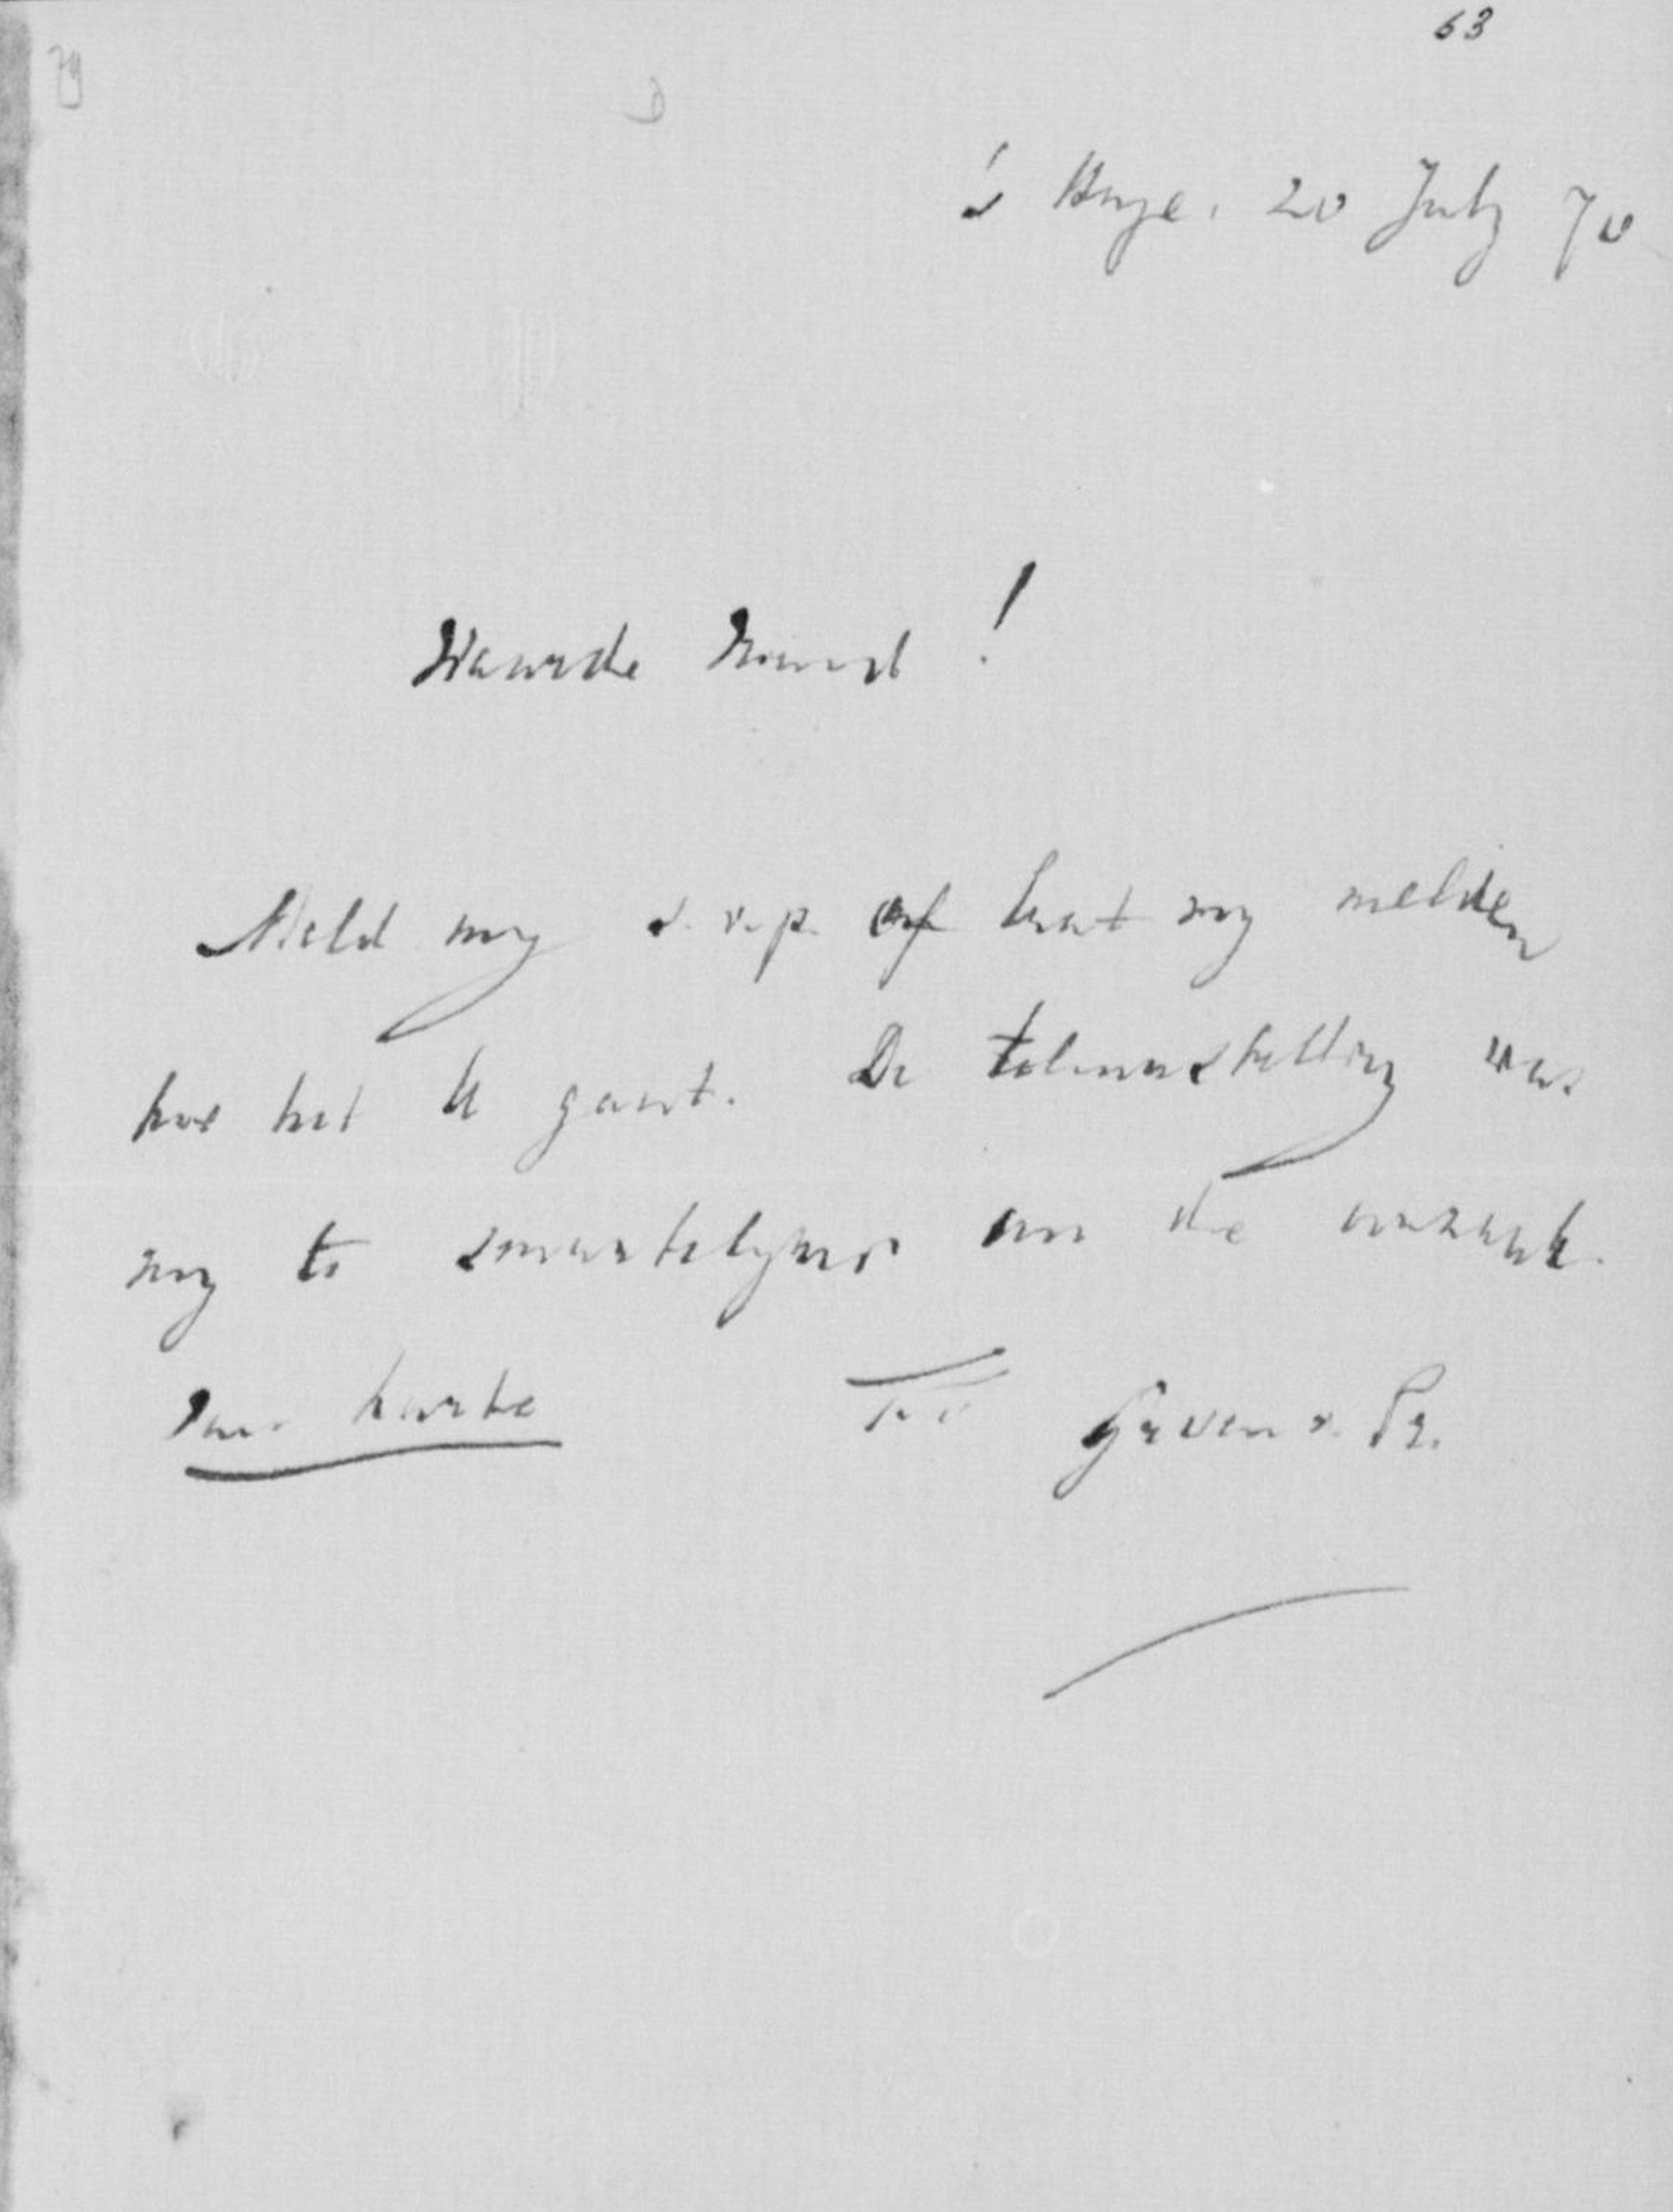 63
's Hage. 20 July 70
Waarde Vriend!
Meld my s.v.p. of laat my melden
hoe het U gaat. De teleurstelling was
my te smartelyker om die oorzaak.
van harte TT Groen v. Pr.